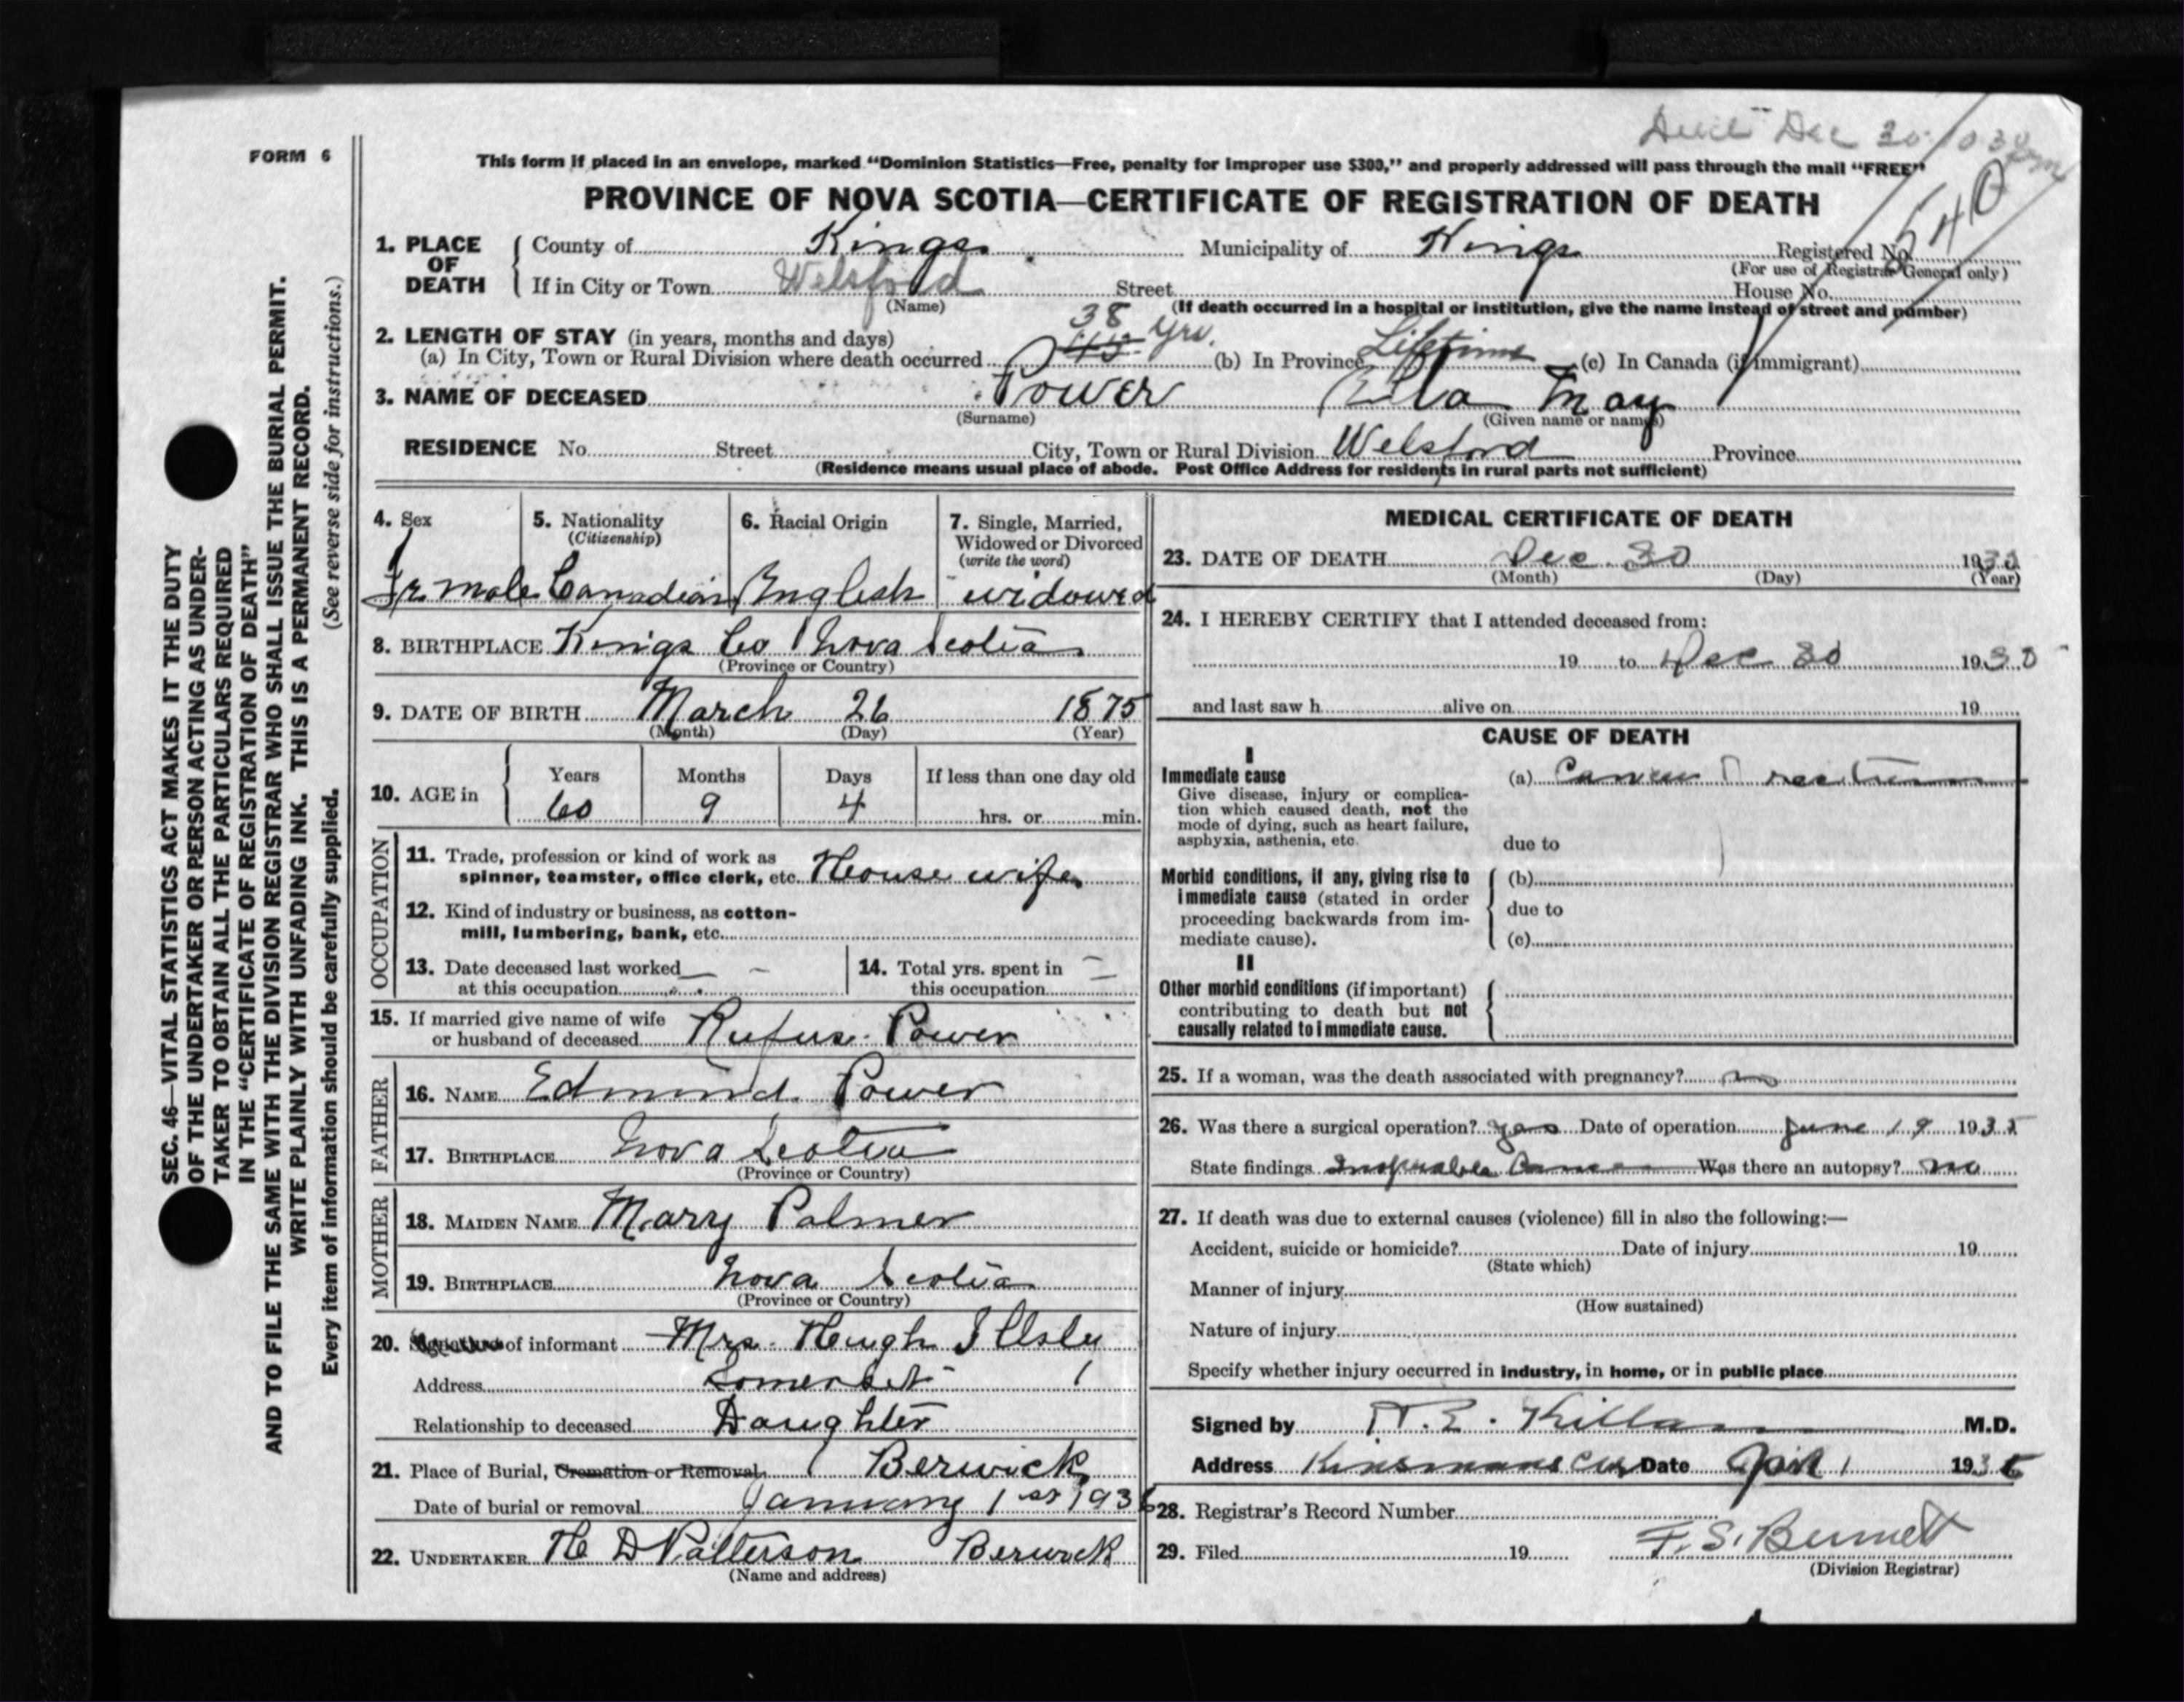 Died Dec 30 1030 pm
FORM 6
This form if placed in an envelope, marked "Dominion Statistics—Free, penalty for improper use $300," and properly addressed will pass through the mail "FREE"
PROVINCE OF NOVA SCOTIA—CERTIFICATE OF REGISTRATION OF DEATH
540
1. PLACE OF DEATH { County of Kings Municipality of Kings Registered No.
(For use of Registrar General only)
If in City or Town Welsford Street House No.
(Name) (If death occurred in a hospital or institution, give the name instead of street and number)
2. LENGTH OF STAY (in years, months and days) 38 yrs.
(a) In City, Town or Rural Division where death occurred (b) In Province Lifetime (c) In Canada (if immigrant)
3. NAME OF DECEASED Power Ella May
(Surname) (Given name or names)
RESIDENCE No. Street City, Town or Rural Division Welsford Province
(Residence means usual place of abode. Post Office Address for residents in rural parts not sufficient)
4. Sex 5. Nationality (Citizenship) 6. Racial Origin 7. Single, Married, Widowed or Divorced (write the word)
Female Canadian English widowed
8. BIRTHPLACE Kings Co Nova Scotia
(Province or Country)
9. DATE OF BIRTH March 26 1875
(Month) (Day) (Year)
10. AGE in Years Months Days If less than one day old
60 9 4 hrs. or min.
OCCUPATION
11. Trade, profession or kind of work as
spinner, teamster, office clerk, etc. House wife
12. Kind of industry or business, as cotton-
mill, lumbering, bank, etc.
13. Date deceased last worked — – 14. Total yrs. spent in —
at this occupation this occupation
15. If married give name of wife
or husband of deceased Rufus Power
FATHER
16. NAME Edmund Power
17. BIRTHPLACE Nova Scotia
(Province or Country)
MOTHER
18. MAIDEN NAME Mary Palmer
19. BIRTHPLACE Nova Scotia
(Province or Country)
20. Signature of informant Mrs. Hough Illsley
Address Somerset
Relationship to deceased Daughter
21. Place of Burial, Cremation or Removal Berwick
Date of burial or removal January 1st 1936
22. UNDERTAKER H D Patterson Berwick
(Name and address)
MEDICAL CERTIFICATE OF DEATH
23. DATE OF DEATH Dec. 30 1935
(Month) (Day) (Year)
24. I HEREBY CERTIFY that I attended deceased from:
19 to Dec 30 1935
and last saw h alive on 19
CAUSE OF DEATH
I
Immediate cause (a) Cancer of rectum
Give disease, injury or complica-
tion which caused death, not the
mode of dying, such as heart failure,
asphyxia, asthenia, etc. due to
Morbid conditions, if any, giving rise to (b)
immediate cause (stated in order
proceeding backwards from im- due to
mediate cause). (c)
II
Other morbid conditions (if important)
contributing to death but not
causally related to immediate cause.
25. If a woman, was the death associated with pregnancy? no
26. Was there a surgical operation? yes Date of operation June 19 1935
State findings Inoperable Cancer Was there an autopsy? no
27. If death was due to external causes (violence) fill in also the following:—
Accident, suicide or homicide? Date of injury 19
(State which)
Manner of injury
(How sustained)
Nature of injury
Specify whether injury occurred in industry, in home, or in public place
Signed by H. E. Killam M.D.
Address Kinsmans Cor Date Jan 1 1936
28. Registrar's Record Number
29. Filed 19 F. S. Burnett
(Division Registrar)
SEC. 46—VITAL STATISTICS ACT MAKES IT THE DUTY
OF THE UNDERTAKER OR PERSON ACTING AS UNDER-
TAKER TO OBTAIN ALL THE PARTICULARS REQUIRED
IN THE "CERTIFICATE OF REGISTRATION OF DEATH"
AND TO FILE THE SAME WITH THE DIVISION REGISTRAR WHO SHALL ISSUE THE BURIAL PERMIT.
WRITE PLAINLY WITH UNFADING INK. THIS IS A PERMANENT RECORD.
Every item of information should be carefully supplied. (See reverse side for instructions.)